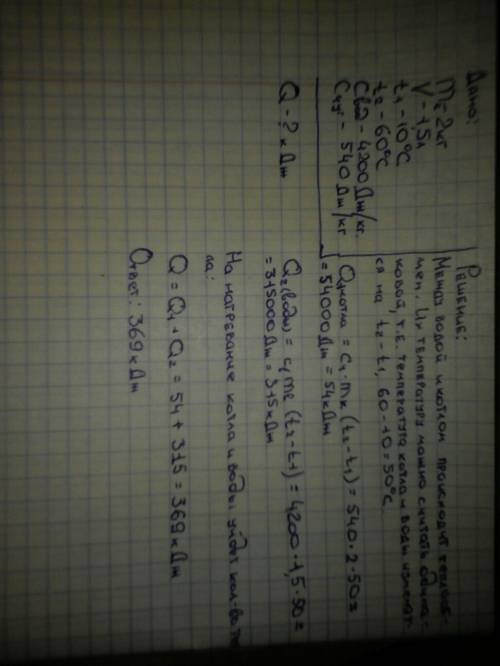 Дано:
m = 2кг
V - 1,5л
t1 - 10°C
t2 - 60°C
Cвод - 4200 Дж/кг.
Cчуг - 540 Дж/кг
Q - ? кДж
Решение:
Между водой и котлом происходит теплооб-
мен. Их температуру можно считать одина-
ковой, т.е. температура котла и воды изменит-
ся на t2 - t1, 60 - 10 = 50°C
Q1котла = C1 · mк (t2 - t1) = 540 · 2 · 50 =
= 54000Дж = 54кДж
Q2(воды) = c1 mв (t2 - t1) = 4200 · 1,5 · 50 =
= 315000Дж = 315кДж
На нагревание котла и воды уйдёт кол-во теп
ла:
Q = Q1 + Q2 = 54 + 315 = 369кДж
Ответ: 369кДж